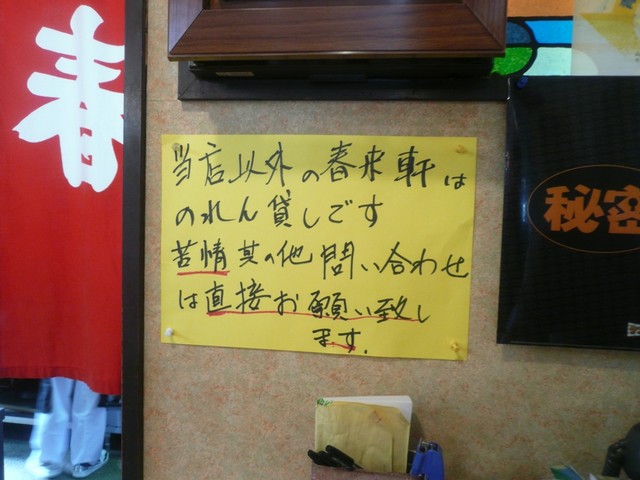 春
当店以外の春来軒は
のれん貸しです
苦情其の他問い合わせ
は直接お願い致し
ます.
秘密